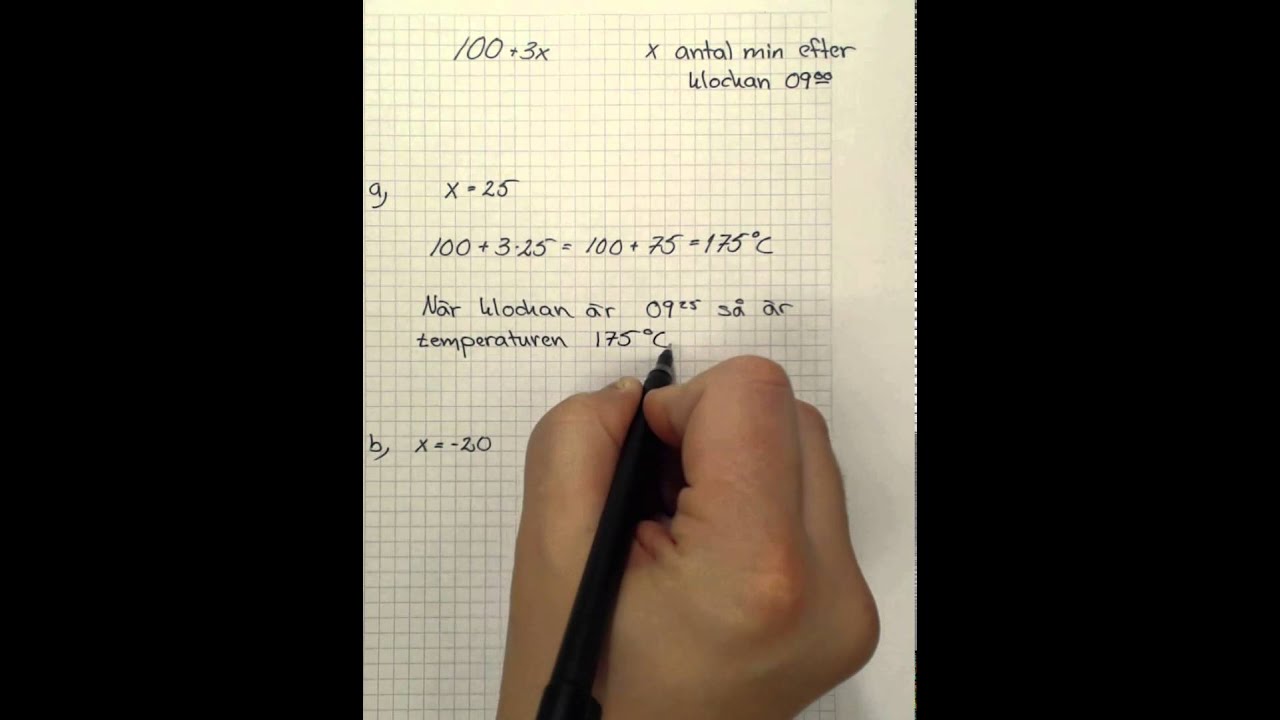 100 + 3x
x antal min efter
klockan 09⁰⁰
a, x = 25
100 + 3·25 = 100 + 75 = 175°C
När klockan är 09²⁵ så är
temperaturen 175°C
b, x = -20